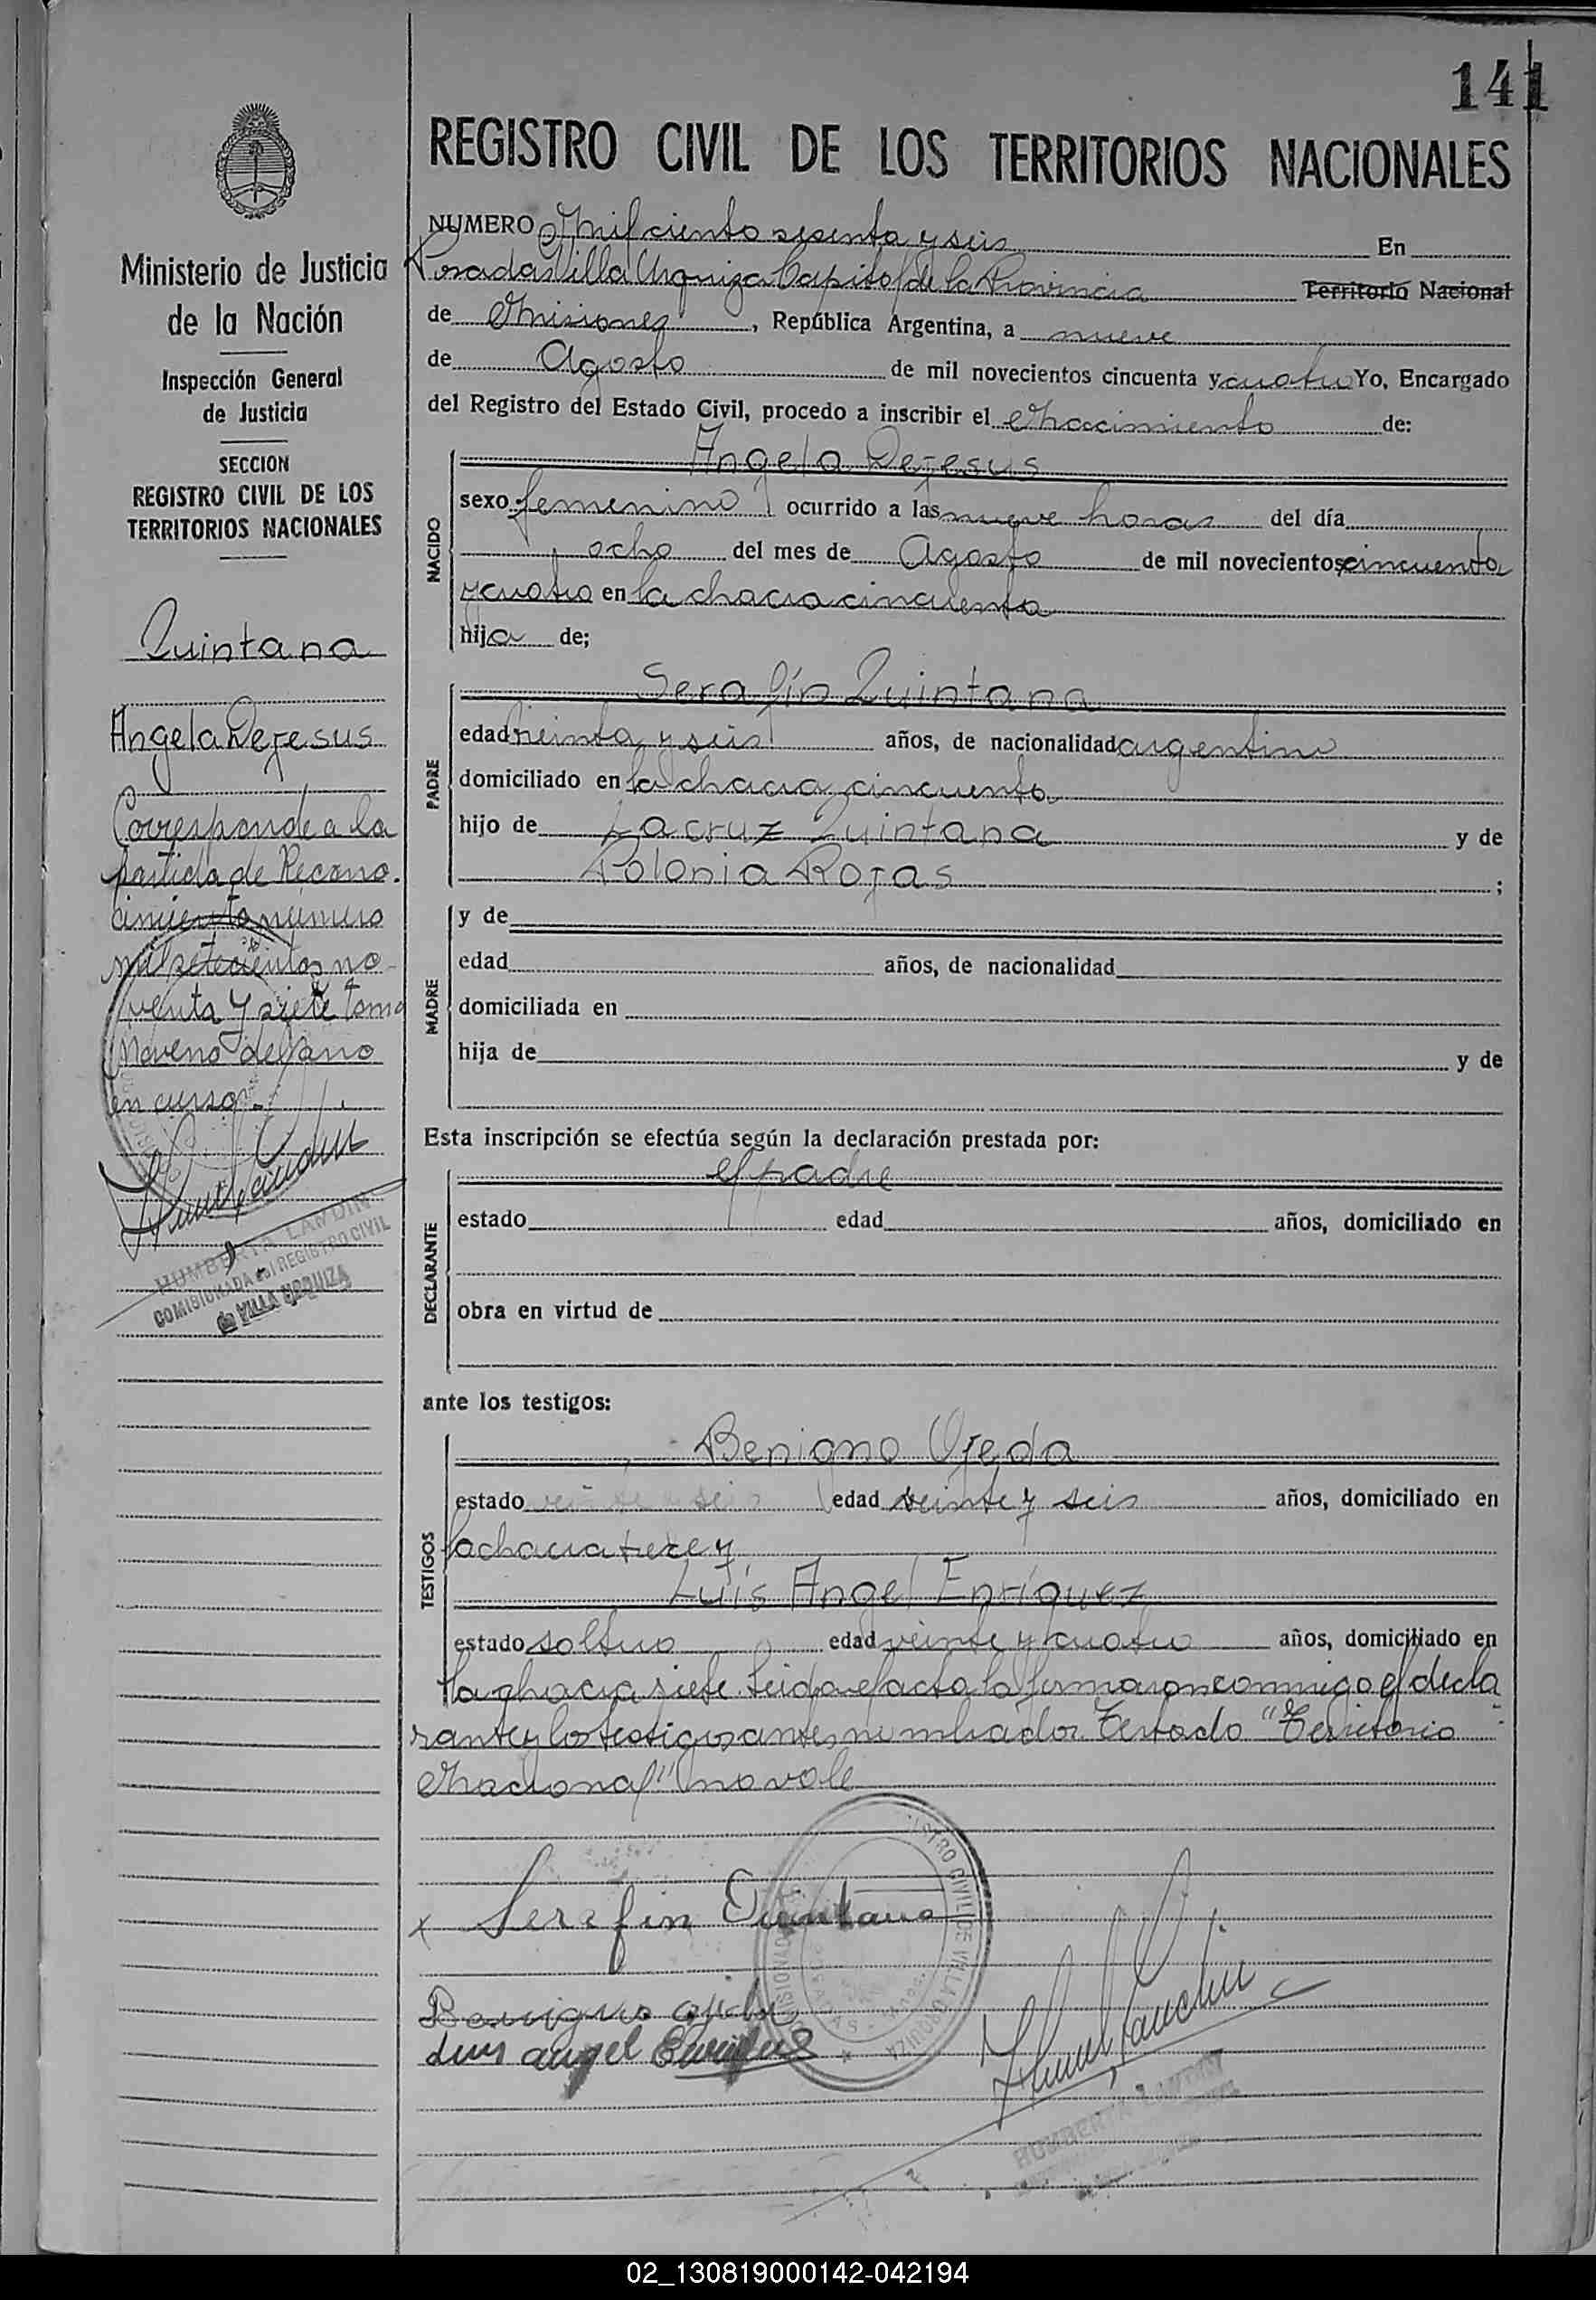 141
REGISTRO CIVIL DE LOS TERRITORIOS NACIONALES
NUMERO Mil ciento sesenta y seis En
Posadas Villa Urquiza Capital de la Provincia Territorio Nacional
de Misiones, República Argentina, a nueve
de Agosto de mil novecientos cincuenta y cuatro Yo, Encargado
del Registro del Estado Civil, procedo a inscribir el Nacimiento de:
NACIDO
Angela Dejesus
sexo femenino ocurrido a las nueve horas del día
ocho del mes de Agosto de mil novecientos cincuenta
y cuatro en la chacra cincuenta
hija de;
PADRE
Serafin Quintana
edad treinta y seis años, de nacionalidad argentino
domiciliado en la chacra cincuenta
hijo de Lacruz Quintana y de
Polonia Rojas ;
MADRE
y de
edad años, de nacionalidad
domiciliada en
hija de y de
Esta inscripción se efectúa según la declaración prestada por:
DECLARANTE
el padre
estado edad años, domiciliado en
obra en virtud de
ante los testigos:
TESTIGOS
Benigno Ojeda
estado edad veinte y seis años, domiciliado en
la chacra trece y
Luis Angel Enriquez
estado soltero edad veinte y cuatro años, domiciliado en
la chacra siete. Leida el acta la firmaron conmigo el decla
rante y los testigos antes nombrados. Testado "Territorio
Nacional" no vale
x Serafin Quintana
Benigno Ojeda
Luis angel Enriquez
Ministerio de Justicia
de la Nación
Inspección General
de Justicia
SECCION
REGISTRO CIVIL DE LOS
TERRITORIOS NACIONALES
Quintana
Angela Dejesus
Corresponde a la
partida de Recono-
cimiento número
mil setecientos no-
venta y siete tomo
Noveno del año
en curso.-
HUMBERTA LANDIN
COMISIONADA REGISTRO CIVIL
de VILLA URQUIZA
REGISTRO CIVIL DE VILLA URQUIZA
HUMBERTA LANDIN
02_130819000142-042194